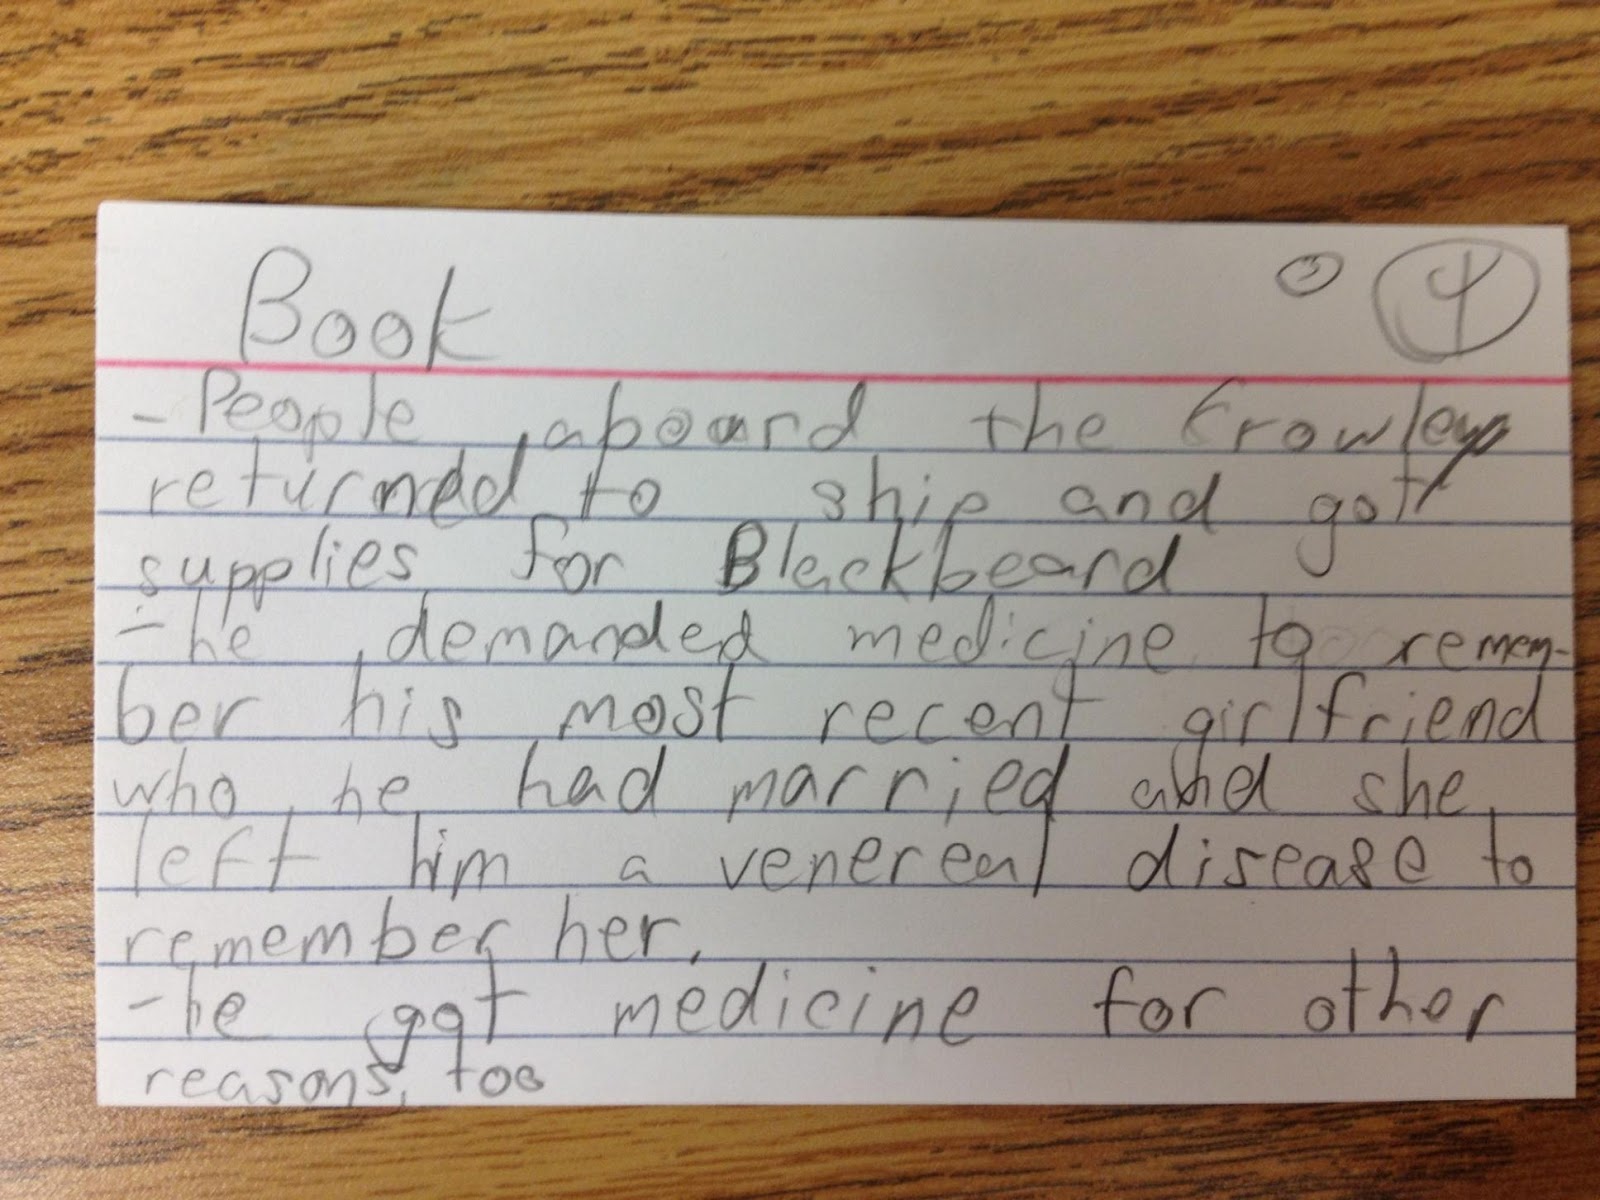 Book 4
- People aboard the Crowley
returned to ship and got
supplies for Blackbeard
- he demanded medicine to remem-
ber his most recent girlfriend
who he had married and she
left him a venereal disease to
remember her.
- he got medicine for other
reasons, too